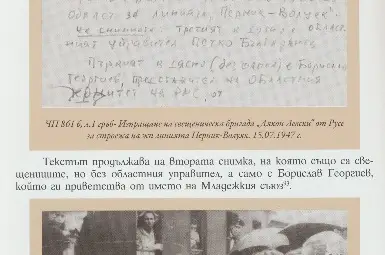 област за линията Перник-Волуяк.
На снимката: третият в ляво е област-
ният управител Петко
Първият в дясно (без            ) е Борислав
Георгиев, председател на Областния
комитет на РМС, от
ЧП 861 б, л.1 гръб- Изпращане на свещеническа бригада „Дякон Левски“ от Русе
за строежа на жп линията Перник-Волуяк. 15.07.1947 г.
Текстът продължава на втората снимка, на която също са све-
щениците, но без областния управител, а само с Борислав Георгиев,
който ги приветства от името на Младежкия съюз